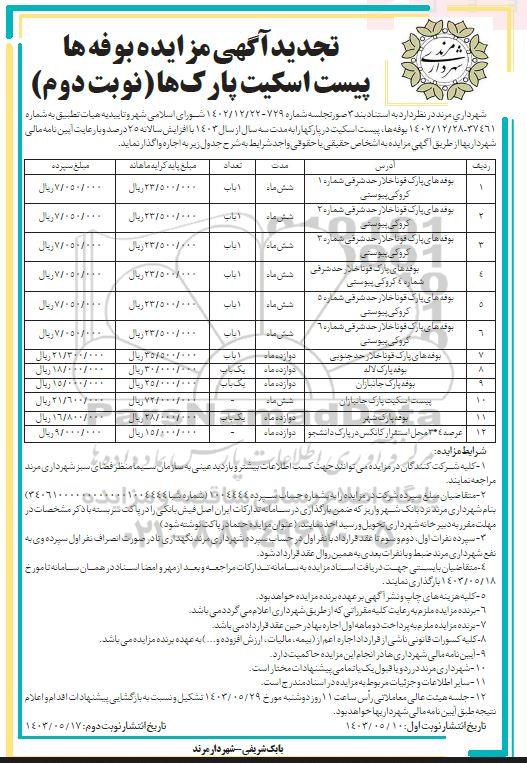 شهرداری مرند
تجدید آگهی مزایده بوفه ها
پیست اسکیت پارک‌ها (نوبت دوم)
شهرداری مرند در نظر دارد به استناد بند ۲ صورتجلسه شماره ۷۲۹-۱۴۰۲/۱۲/۲۲ شورای اسلامی شهر و تاییدیه هیات تطبیق به شماره
۳۷۴۶۱-۱۴۰۲/۱۲/۲۸ بوفه‌ها، پیست اسکیت در پارکها را به مدت سه سال از سال ۱۴۰۳ با افزایش سالانه ۲۵ درصد و با رعایت آیین نامه مالی
شهرداریها از طریق آگهی مزایده به اشخاص حقیقی یا حقوقی واجد شرایط به شرح جدول زیر به اجاره واگذار نماید.
ردیف آدرس مدت تعداد مبلغ پایه کرایه ماهانه مبلغ سپرده
۱ بوفه های پارک قوناخلار حد شرقی شماره ۱ کروکی پیوستی شش ماه ۱ باب ۲۳/۵۰۰/۰۰۰ ریال ۷/۰۵۰/۰۰۰ ریال
۲ بوفه های پارک قوناخلار حد شرقی شماره ۲ کروکی پیوستی شش ماه ۱ باب ۲۳/۵۰۰/۰۰۰ ریال ۷/۰۵۰/۰۰۰ ریال
۳ بوفه های پارک قوناخلار حد شرقی شماره ۳ کروکی پیوستی شش ماه ۱ باب ۲۳/۵۰۰/۰۰۰ ریال ۷/۰۵۰/۰۰۰ ریال
۴ بوفه های پارک قوناخلار حد شرقی شماره ۴ کروکی پیوستی شش ماه ۱ باب ۲۳/۵۰۰/۰۰۰ ریال ۷/۰۵۰/۰۰۰ ریال
۵ بوفه های پارک قوناخلار حد شرقی شماره ۵ کروکی پیوستی شش ماه ۱ باب ۲۳/۵۰۰/۰۰۰ ریال ۷/۰۵۰/۰۰۰ ریال
۶ بوفه های پارک قوناخلار حد شرقی شماره ۶ کروکی پیوستی شش ماه ۱ باب ۲۳/۵۰۰/۰۰۰ ریال ۷/۰۵۰/۰۰۰ ریال
۷ بوفه های پارک قوناخلار حد جنوبی دوازده ماه ۱ باب ۳۵/۵۰۰/۰۰۰ ریال ۲۱/۳۰۰/۰۰۰ ریال
۸ بوفه پارک لاله دوازده ماه یک باب ۳۰/۰۰۰/۰۰۰ ریال ۱۸/۰۰۰/۰۰۰ ریال
۹ بوفه پارک جانبازان دوازده ماه یک باب ۲۵/۰۰۰/۰۰۰ ریال ۱۵/۰۰۰/۰۰۰ ریال
۱۰ پیست اسکیت پارک جانبازان شش ماه - ۷۲/۰۰۰/۰۰۰ ریال ۲۱/۶۰۰/۰۰۰ ریال
۱۱ بوفه پارک شهر دوازده ماه یک باب ۲۸/۰۰۰/۰۰۰ ریال ۱۶/۸۰۰/۰۰۰ ریال
۱۲ عرصه ۴*۳ محل استقرار کانکس در پارک دانشجو دوازده ماه - ۱۵/۰۰۰/۰۰۰ ریال ۹/۰۰۰/۰۰۰ ریال
شرایط مزایده:
۱-کلیه شرکت کنندگان در مزایده می توانند جهت کسب اطلاعات بیشتر و بازدید عینی به سازمان سیما منظر فضای سبز شهرداری مرند
مراجعه نمایند.
۲-متقاضیان مبلغ سپرده شرکت در مزایده را به شماره حساب سپرده ۱۰۰۴۴۴۴
بنام شهرداری مرند نزد بانک شهر واریز که ضمن بارگذاری در سامانه تدارکات ایران اصل فیش بانکی را در پاکت سربسته با ذکر مشخصات در
مهلت مقرر به دبیرخانه شهرداری تحویل و رسید اخذ نمایند. (عنوان مزایده حتما در پاکت نوشته شود)
۳- سپرده نفرات اول، دوم و سوم تا عقد قرارداد با نفر اول در حساب سپرده شهرداری مرند نگهداری تا در صورت انصراف نفر اول سپرده وی به
نفع شهرداری مرند ضبط و با نفرات بعدی به همین روال عقد قرارداد شود.
۴-متقاضیان بایستی جهت دریافت اسناد مزایده به سامانه تدارکات مراجعه و بعد از مهر و امضا اسناد در همان سامانه تا مورخ
۱۴۰۳/۰۵/۱۸ بارگذاری نمایند.
۵-کلیه هزینه های چاپ و نشر آگهی بر عهده برنده مزایده خواهد بود.
۶-برنده مزایده ملزم به رعایت کلیه مقرراتی که از طریق شهرداری اعلام می گردد می باشد.
۷-برنده مزایده ملزم به پرداخت دو ماهه اول اجاره بها در حین عقد قرارداد می باشد.
۸-کلیه کسورات قانونی ناشی از قرارداد اجاره اعم از (بیمه، مالیات، ارزش افزوده و...) به عهده برنده مزایده می باشد.
۹-آیین نامه مالی شهرداری ها در انجام این مزایده حاکمیت دارد.
۱۰-شهرداری مرند در رد و یا قبول یک یا تمامی پیشنهادات مختار است.
۱۱-سایر اطلاعات و جزئیات مربوط به مزایده در اسناد مندرج است.
۱۲-جلسه هیئت عالی معاملاتی راس ساعت ۱۱ روز دوشنبه مورخ ۱۴۰۳/۰۵/۲۹ تشکیل و نسبت به بازگشایی پیشنهادات اقدام و اعلام
نتیجه طبق آیین نامه مالی شهرداریها خواهد بود.
تاریخ انتشار نوبت اول: ۱۴۰۳/۰۵/۱۰ تاریخ انتشار نوبت دوم: ۱۴۰۳/۰۵/۱۷
بابک شریفی-شهردار مرند